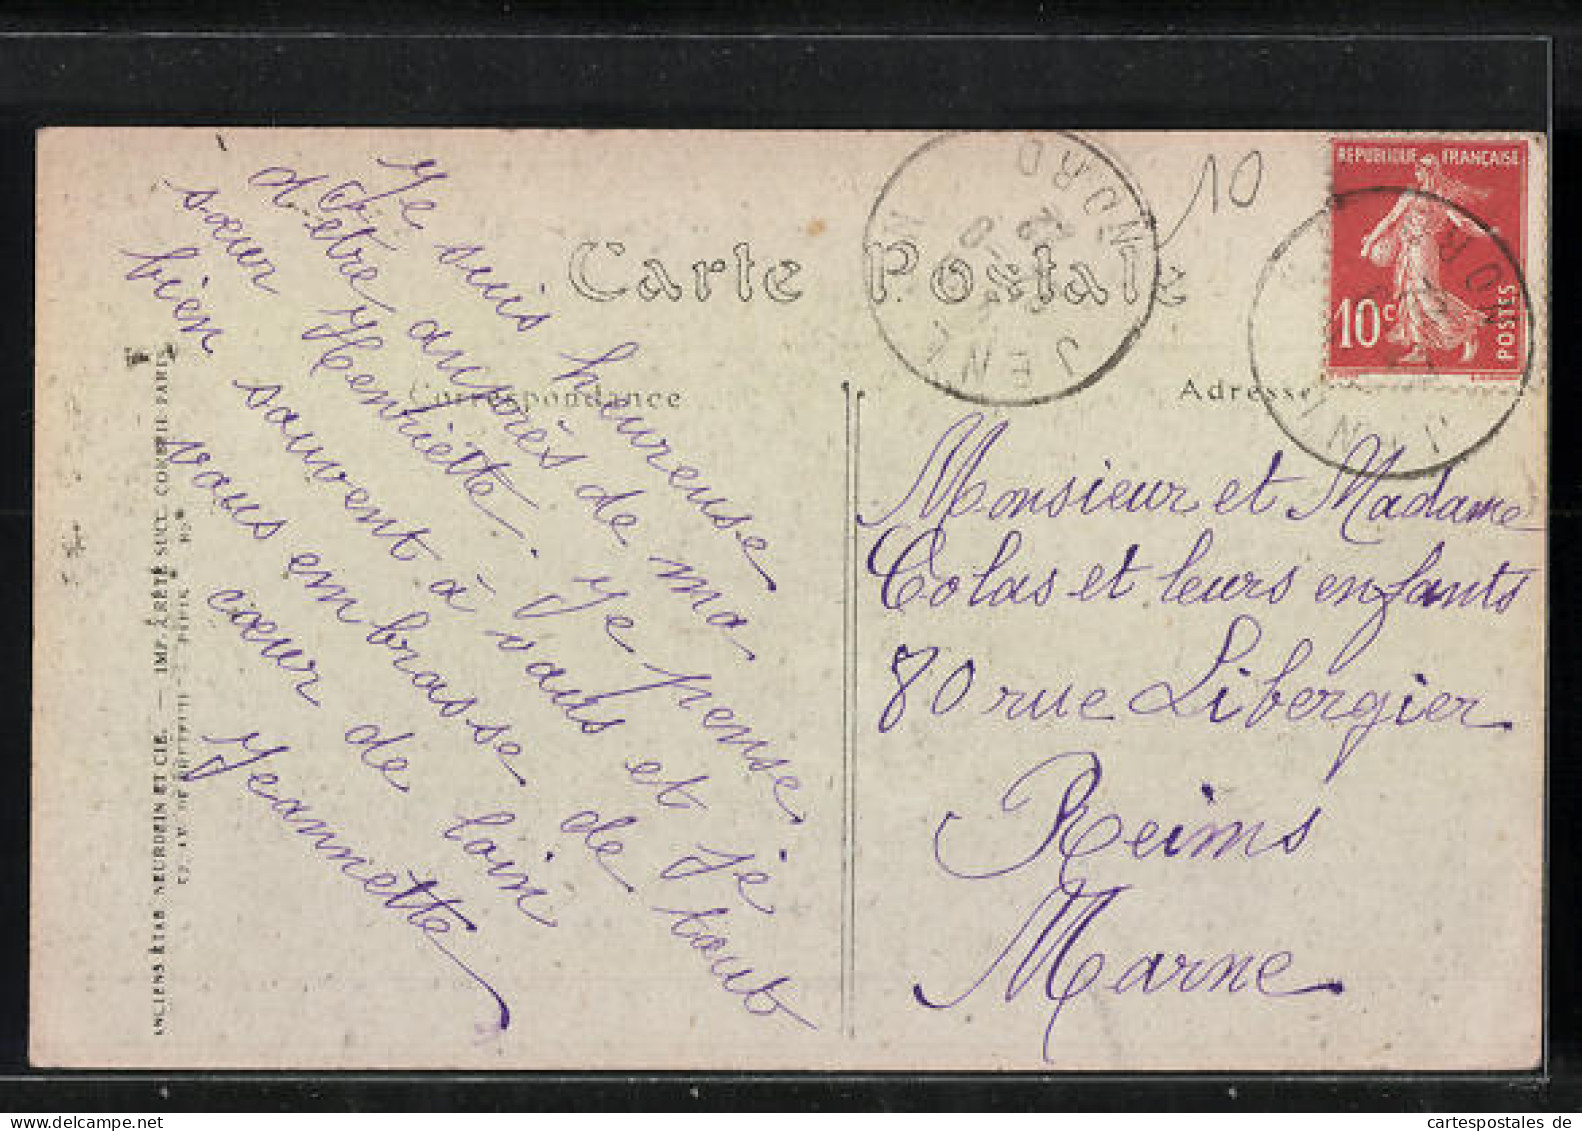 Carte Postale
10
REPUBLIQUE FRANÇAISE
10c
POSTES
NORD
JENLAIN
NORD
Correspondance
Adresse
Je suis heureuse
d'être auprès de ma
sœur Henriette. Je pense
bien souvent à vous et je
vous embrasse de tout
cœur de loin
Jeannette
Monsieur et Madame
Colas et leurs enfants
80 rue Libergier
Reims
Marne
ANCIENS ÉTAB. NEURDEIN ET CIE. — IMP. CRÉTÉ SUCC. CORBEIL-PARIS
cartespostales de